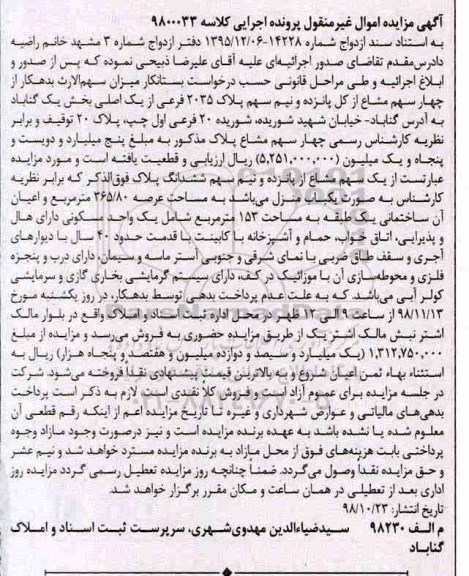 آگهی مزایده اموال غیرمنقول پرونده اجرایی کلاسه ۹۸۰۰۰۳۳
به استناد سند ازدواج شماره ۱۴۲۲۸-۱۳۹۵/۱۲/۰۶ دفتر ازدواج شماره ۳ مشهد خانم راضیه
دادرس‌مقدم تقاضای صدور اجرائیه‌ای علیه آقای علیرضا ذبیحی نموده که پس از صدور و
ابلاغ اجرائیه و طی مراحل قانونی حسب درخواست بستانکار میزان سهم‌الارث بدهکار از
چهار سهم مشاع از کل پانزده و نیم سهم پلاک ۲۰۳۵ فرعی از یک اصلی بخش یک گناباد
به آدرس گناباد- خیابان شهید شوریده، شوریده ۲۰ فرعی اول چپ، پلاک ۲۰ توقیف و برابر
نظریه کارشناس رسمی چهار سهم مشاع پلاک مذکور به مبلغ پنج میلیارد و دویست و
پنجاه و یک میلیون (۵,۲۵۱,۰۰۰,۰۰۰) ریال ارزیابی و قطعیت یافته است و مورد مزایده
عبارتست از یک سهم مشاع از پانزده و نیم سهم ششدانگ پلاک فوق‌الذکر که برابر نظریه
کارشناس به صورت یکباب منزل می‌باشد به مساحت عرصه ۳۶۵/۸۰ مترمربع و اعیان
آن ساختمانی یک طبقه به مساحت ۱۵۳ مترمربع شامل یک واحد مسکونی دارای هال
و پذیرایی، اتاق خواب، حمام و آشپزخانه با کابینت با قدمت حدود ۴۰ سال با دیوارهای
آجری و سقف طاق ضربی با نمای شرقی و جنوبی آستر ماسه و سیمان، دارای درب و پنجره
فلزی و محوطه‌سازی آن با موزائیک در کف، دارای سیستم گرمایشی بخاری گازی و سرمایشی
کولر آبی می‌باشد. که به علت عدم پرداخت بدهی توسط بدهکار، در روز یکشنبه مورخ
۹۸/۱۱/۱۳ از ساعت ۹ الی ۱۲ ظهر در محل اداره ثبت اسناد و املاک واقع در بلوار مالک
اشتر نبش مالک اشتر یک از طریق مزایده حضوری به فروش می‌رسد و مزایده از مبلغ
۱,۳۱۲,۷۵۰,۰۰۰ (یک میلیارد و سیصد و دوازده میلیون و هفتصد و پنجاه هزار) ریال به
استثناء بهاء ثمن اعیان شروع و به بالاترین قیمت پیشنهادی نقدا فروخته می‌شود. شرکت
در جلسه مزایده برای عموم آزاد است و فروش کلا نقدی است. لازم به ذکر است پرداخت
بدهی‌های مالیاتی و عوارض شهرداری و غیره تا تاریخ مزایده اعم از اینکه رقم قطعی آن
معلوم شده یا نشده باشد به عهده برنده مزایده است و نیز درصورت وجود مازاد وجوه
پرداختی بابت هزینه‌های فوق از محل مازاد به برنده مزایده مسترد خواهد شد و نیم عشر
و حق مزایده نقدا وصول می‌گردد. ضمنا چنانچه روز مزایده تعطیل رسمی گردد مزایده روز
اداری بعد از تعطیلی در همان ساعت و مکان مقرر برگزار خواهد شد.
تاریخ انتشار: ۹۸/۱۰/۲۳
م الف ۹۸۲۳۰ سیدضیاءالدین مهدوی‌شهری، سرپرست ثبت اسناد و املاک
گناباد